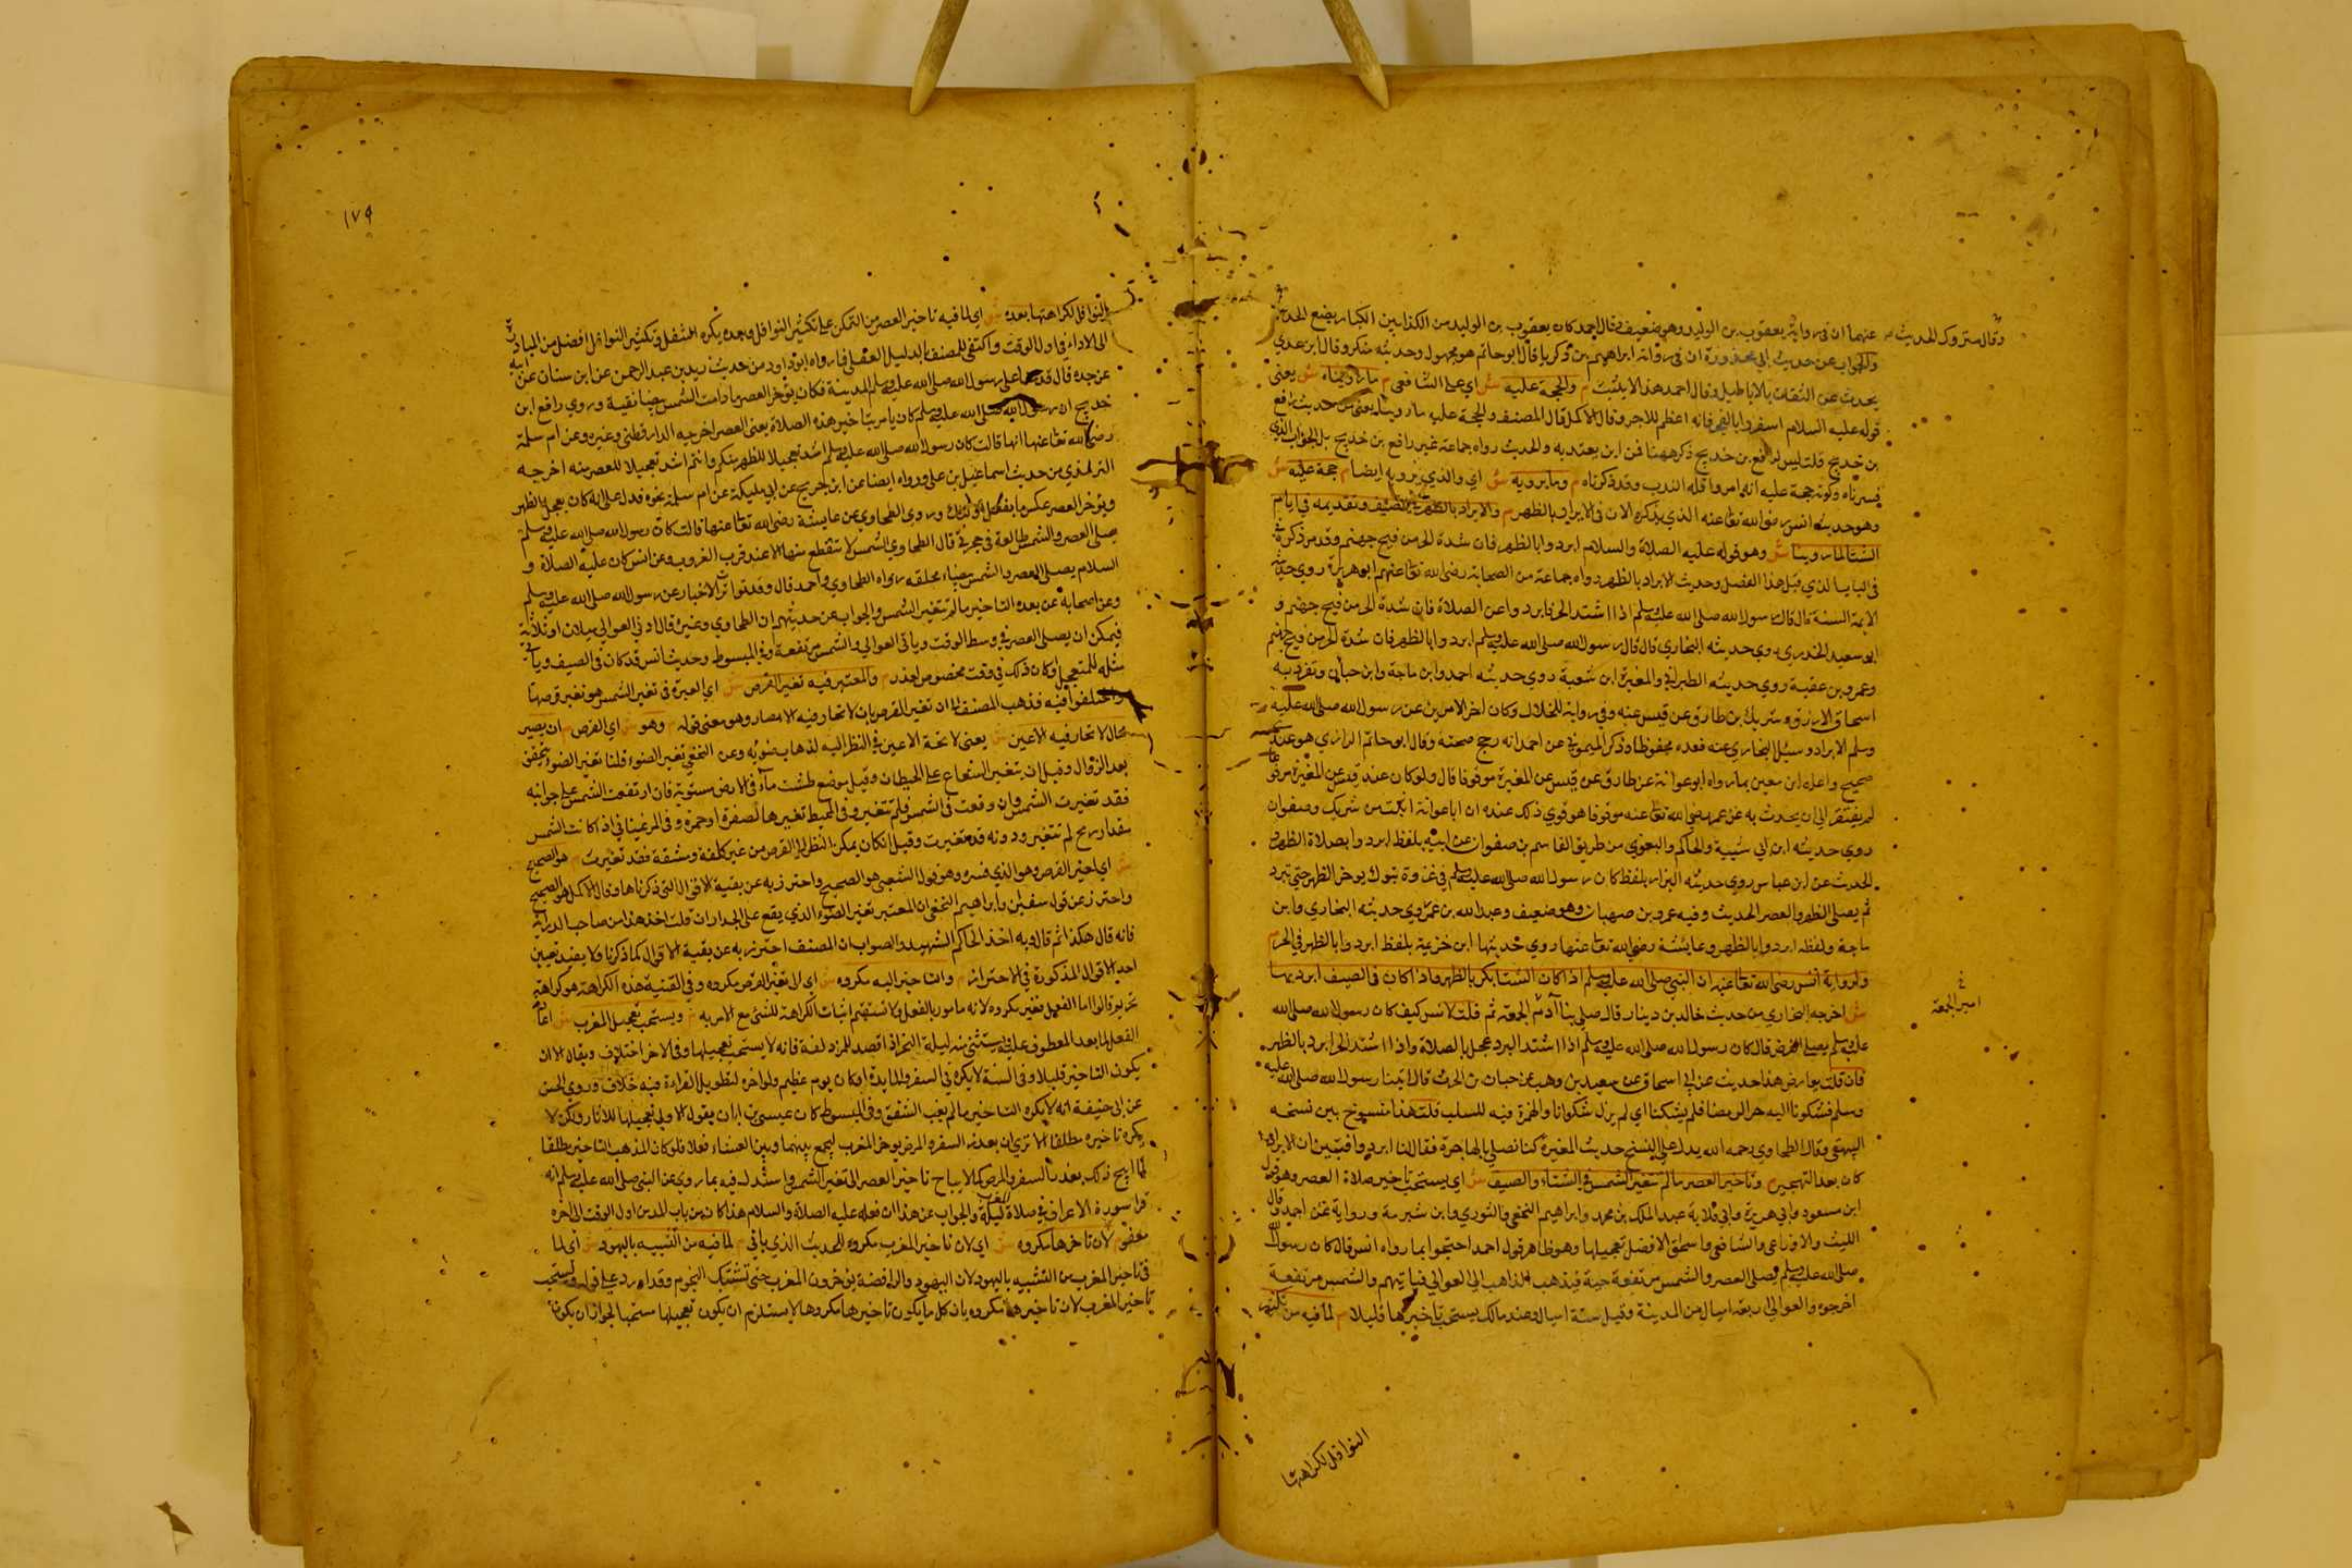 وقال متروك الحديث
عنهما ان في رواية يعقوب بن الوليد وهو ضعيف قال احمد كان يعقوب بن الوليد من الكذابين الكبار يضع الحديث
والجواب عن حديث ابي محذورة ان في رواته ابراهيم بن زكريا قال ابو حاتم هو مجهول وحديثه منكر وقال ابن عدي
يحدث عن الثقات بالاباطيل وقال احمد هذا لا يثبت م والحجة عليه ش اي على الشافعي م ما رويناه ش يعني
قوله عليه السلام اسفروا بالفجر فانه اعظم للاجر وقال الاكمل قال المصنف والحجة عليه ما رويناه يعني من حديث رافع
بن خديج قلت ليس لرافع بن خديج ذكر ههنا فمن اين يعتد به والحديث رواه جماعة غير رافع بن خديج بل الجواب الذي
فسرناه وكونه حجة عليه انه امر واقله الندب وقد ذكرناه م وما يرويه ش اي والذي يرويه ايضا م حجة عليه ش
وهو حديث انس رضي الله تعا عنه الذي يذكره الان في الابراد بالظهر م والابراد بالظهر في الصيف وتقديمه في ايام
الشتا لما روينا ش وهو قوله عليه الصلاة والسلام ابردوا بالظهر فان شدة الحر من فيح جهنم وقد مر ذكره
في الباب الذي قبل هذا الفصل وحديث الابراد بالظهر رواه جماعة من الصحابة رضي الله تعا عنهم ابو هريرة روى حديثه
الايمة الستة قال قال رسول الله صلى الله عليه وسلم اذا اشتد الحر فابردوا عن الصلاة فان شدة الحر من فيح جهنم و
ابو سعيد الخدري روى حديثه البخاري قال قال رسول الله صلى الله عليه وسلم ابردوا بالظهر فان شدة الحر من فيح جهنم
وعمرو بن عقبة روي حديثه الطبراني والمغيرة ابن شعبة روي حديثه احمد وابن ماجة وابن حبان وتفرد به
اسحاق الازرق وشريك بن طارق عن قيس عنه وفي رواية للخلال وكان اخر الامرين عن رسول الله صلى الله عليه
وسلم الابراد وسئل البخاري عنه فعده محفوظا وذكر الميموني عن احمد انه رجح صحته وقال ابو حاتم الرازي هو عندي
صحيح واعله ابن معين بما رواه ابو عوانة عن طارق عن قيس عن المغيرة موقوفا قال ولو كان عند قيس عن المغيرة مرفوعا
لم يفتقر الى ان يحدث به عن عمر رضي الله تعا عنه موقوفا هو قوي ذلك عنده ان ابا عوانة اثبت من شريك وصفوان
روي حديثه ابن ابي شيبة والحاكم والبغوي من طريق القاسم بن صفوان عن ابيه بلفظ ابردوا بصلاة الظهر
الحديث عن ابن عباس روي حديثه البزار بلفظ كان رسول الله صلى الله عليه وسلم في غزوة تبوك يوخر الظهر حتى تبرد
ثم يصلي الظهر والعصر الحديث وفيه عمرو بن صهبان وهو ضعيف وعبد الله بن عمر روي حديثه البخاري وابن
ماجة ولفظه ابردوا بالظهر وعايشة رضي الله تعا عنها روي حديثها ابن خزيمة بلفظ ابردوا بالظهر في الحر م
ولرواية انس رضي الله تعا عنه ان النبي صلى الله عليه وسلم اذا كان الشتا بكر بالظهر واذا كان في الصيف ابرد بها
ش اخرجه البخاري من حديث خالد بن دينار قال صلى بنا الجمعة ثم قلت لانس كيف كان رسول الله صلى الله
امير الجمعة
عليه وسلم يصلي الظهر قال كان رسول الله صلى الله عليه وسلم اذا اشتد البرد عجل بالصلاة واذا اشتد الحر ابرد بالظهر
فان قلت يعارض هذا حديث عن ابي اسحاق عن سعيد بن وهب عن خباب بن الارت قال اتينا رسول الله صلى الله عليه
وسلم فشكونا اليه حر الرمضا فلم يشكنا اي لم يزل شكوانا والهمزة فيه للسلب قلت هذا منسوخ بين نسخه
البيهقي وقال الطحاوي رحمه الله يدل على النسخ حديث المغيرة كنا نصلي بالهاجرة فقال لنا ابردوا فتبين ان الابراد
كان بعد التهجير م وتاخير العصر ما لم تتغير الشمس في الشتاء والصيف ش اي يستحب تاخير صلاة العصر وهو قول
ابن مسعود وابي هريرة وابي قلابة عبد الملك بن محمد وابراهيم النخعي والثوري وابن شبرمة ورواية عن احمد وقال
الليث والاوزاعي والشافعي واسحق الافضل تعجيلها وهو ظاهر قول احمد احتجوا بما رواه انس قال كان رسول الله
صلى الله عليه وسلم يصلي العصر والشمس مرتفعة حية فيذهب الذاهب الى العوالي فياتيهم والشمس مرتفعة
اخرجوه والعوالي اربعة اميال من المدينة وقيل ستة اميال وعند مالك يستحب تاخيرها قليلا م لما فيه من تكثير
النوافل لكراهتها
١٧٩
النوافل لكراهتها بعده ش اي لما فيه تاخير العصر من التمكن على تكثير النوافل وبعده يكره التنفل وتكثير النوافل افضل من المبادرة
الى الاداء في اول الوقت واكتفى المصنف بالدليل العقلي فما رواه ابو داود من حديث زيد بن عبد الرحمن عن ابن سنان عن ابيه
عن جده قال قدمنا على رسول الله صلى الله عليه وسلم المدينة فكان يوخر العصر ما دامت الشمس بيضا نقية وروي رافع ابن
خديج ان رسول الله صلى الله عليه وسلم كان يامر بتاخير هذه الصلاة يعني العصر اخرجه الدارقطني وغيره وعن ام سلمة
رضي الله تعا عنها انها قالت كان رسول الله صلى الله عليه وسلم اشد تعجيلا للظهر منكم وانتم اشد تعجيلا للعصر منه اخرجه
الترمذي من حديث اسماعيل بن علي ورواه ايضا عن ابن جريج عن ابي مليكة عن ام سلمة نحوه فدل على انه كان يعجل الظهر
ويوخر العصر عكس ما يفعل وروى الطحاوي عن عايشة رضي الله تعا عنها قالت كان رسول الله صلى الله عليه وسلم
يصلي العصر والشمس طالعة في حجرتي قال الطحاوي الشمس لا تنقطع منها الا عند قرب الغروب وعن انس كان عليه الصلاة و
السلام يصلي العصر والشمس بيضاء محلقة رواه الطحاوي واحمد قال وقد تواترت الاخبار عن رسول الله صلى الله عليه وسلم
وعن اصحابه من بعده التاخير ما لم تتغير الشمس والجواب عن حديثهم ان الطحاوي وغيره قال ادنى العوالي ميلان او ثلاثة
فيمكن ان يصلي العصر في وسط الوقت وياتي العوالي والشمس مرتفعة وفي المبسوط وحديث انس قد كان في الصيف وياتي
مثله للمتعجل او كان ذلك في وقت مخصوص لعذر م والمعتبر فيه تغير القرص ش اي العبرة في تغير الشمس هو تغير قرصها
واختلفوا فيه فذهب المصنف الى ان تغير القرص بان لا تحار فيه الابصار وهو معنى قوله م وهو ش اي القرص م ان يصير
بحال لا تحار فيه الاعين ش يعني لا تحة الاعين في النظر اليه لذهاب ضوئه وعن النخعي تغير الضوء قلنا تغير الضوء يتحقق
بعد الزوال وقيل ان يتغير الشعاع على الحيطان وقيل يوضع طشت مآء في الارض مستوية فان ارتفعت الشمس على جوانبه
فقد تغيرت الشمس وان وقعت في الشمس فلم تتغير وفي المحيط تغيرها لصفرة او حمرة وفي المرغيناني اذا كانت الشمس
مقدار رمح لم تتغير ودونه قد تغيرت وقيل ان كان يمكن النظر الى القرص من غير كلفة ومشقة فقد تغيرت م هو الصحيح
ش اي تغير القرص وهو الذي فسره وهو قول الشعبي هو الصحيح واحترز به عن بقية الاقوال التي ذكرناها وقال الاكمل هو الصحيح
واحترز عن قول سفين وابراهيم النخعي ان المعتبر تغير الضوء الذي يقع على الجدران قلت اخذ هذا من صاحب الدراية
فانه قال هكذا ثم قال وبه اخذ الحاكم الشهيد والصواب ان المصنف احترز به عن بقية الاقوال كما ذكرنا ولا يفيد تعيين
احد الاقوال المذكورة في الاحتراز م والتاخير اليه مكروه ش اي الى تغير القرص مكروه وفي القنية هذه الكراهة هو كراهة
تحريم قالوا اما الفعل فغير مكروه لانه مامور بالفعل ولا تستقيم اثبات الكراهة للشئ مع الامر به م ويستحب تعجيل المغرب ش
الفعل لما بعد المعطوف عليه ويستثنى منه ليلة النحر اذا قصد المزدلفة فانه لا يستحب تعجيلها وفي الاخر اختلاف ويقال الا ان
يكون التاخير قليلا وفي السنة لا يكره في السفر وللمايدة او كان يوم غيم ولو اخره لتطويل القراءة فيه خلاف وروي الحسن
عن ابي حنيفة انه لا يكره التاخير ما لم يغب الشفق وفي المبسوط كان عيسى بن ابان يقول الاولى تعجيلها للاثار ولكن لا
يكره تاخيره مطلقا الا ترى ان بعذر السفر والمرض يوخر المغرب ليجمع بينهما وبين العشاء فعلا فلو كان المذهب التاخير مطلقا
لما ابيح ذلك بعذر السفر والمرض كما لا يباح تاخير العصر الى تغير الشمس واستدل فيه بما روي عن النبي صلى الله عليه وسلم انه
قرا سورة الاعراف في صلاة المغرب ليلة والجواب عن هذا ان فعله عليه الصلاة والسلام هذا كان من باب المد من اول الوقت الى اخره
معفو م لان تاخرها مكروه ش اي لان تاخير المغرب مكروه للحديث الذي ياتي م لما فيه من التشبيه باليهود ش اي لما
في تاخير المغرب من التشبيه باليهود لان اليهود والرافضة يؤخرون المغرب حتى تشتبك النجوم وقد اورد على قوله ويستحب
تاخير المغرب لان تاخيرها مكروه بان كل ما يكون تاخيرها مكروها لا يستلزم ان يكون تعجيلها مستحبا لجواز ان يكون